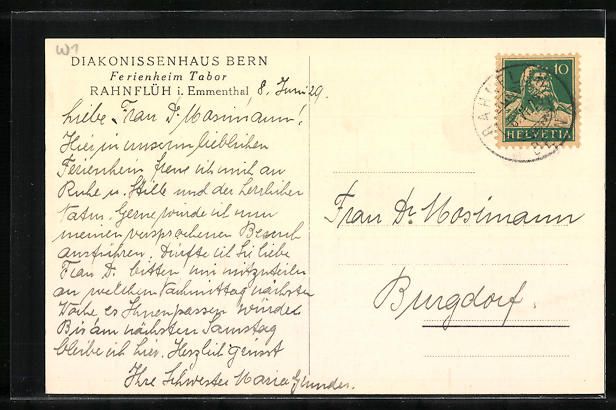 W1
DIAKONISSENHAUS BERN
Ferienheim Tabor
RAHNFLÜH i. Emmenthal 8. Juni 29.
Liebe Frau Dr Mosimann!
Hier in unserm lieblichen
Ferienheim freue ich mich an
Ruhe u. Stille und der herrlichen
Natur. Gerne würde ich nun
meinen versprochenen Besuch
ausführen. Dürfte ich Sie liebe
Frau Dr. bitten mir mitzuteilen
an welchem Nachmittag nächste
Woche es Ihnen passen würde.
Bis am nächsten Samstag
bleibe ich hier. Herzlich grüsst
Ihre Schwester Maria
10
HELVETIA
Frau Dr. Mosimann
Burgdorf.